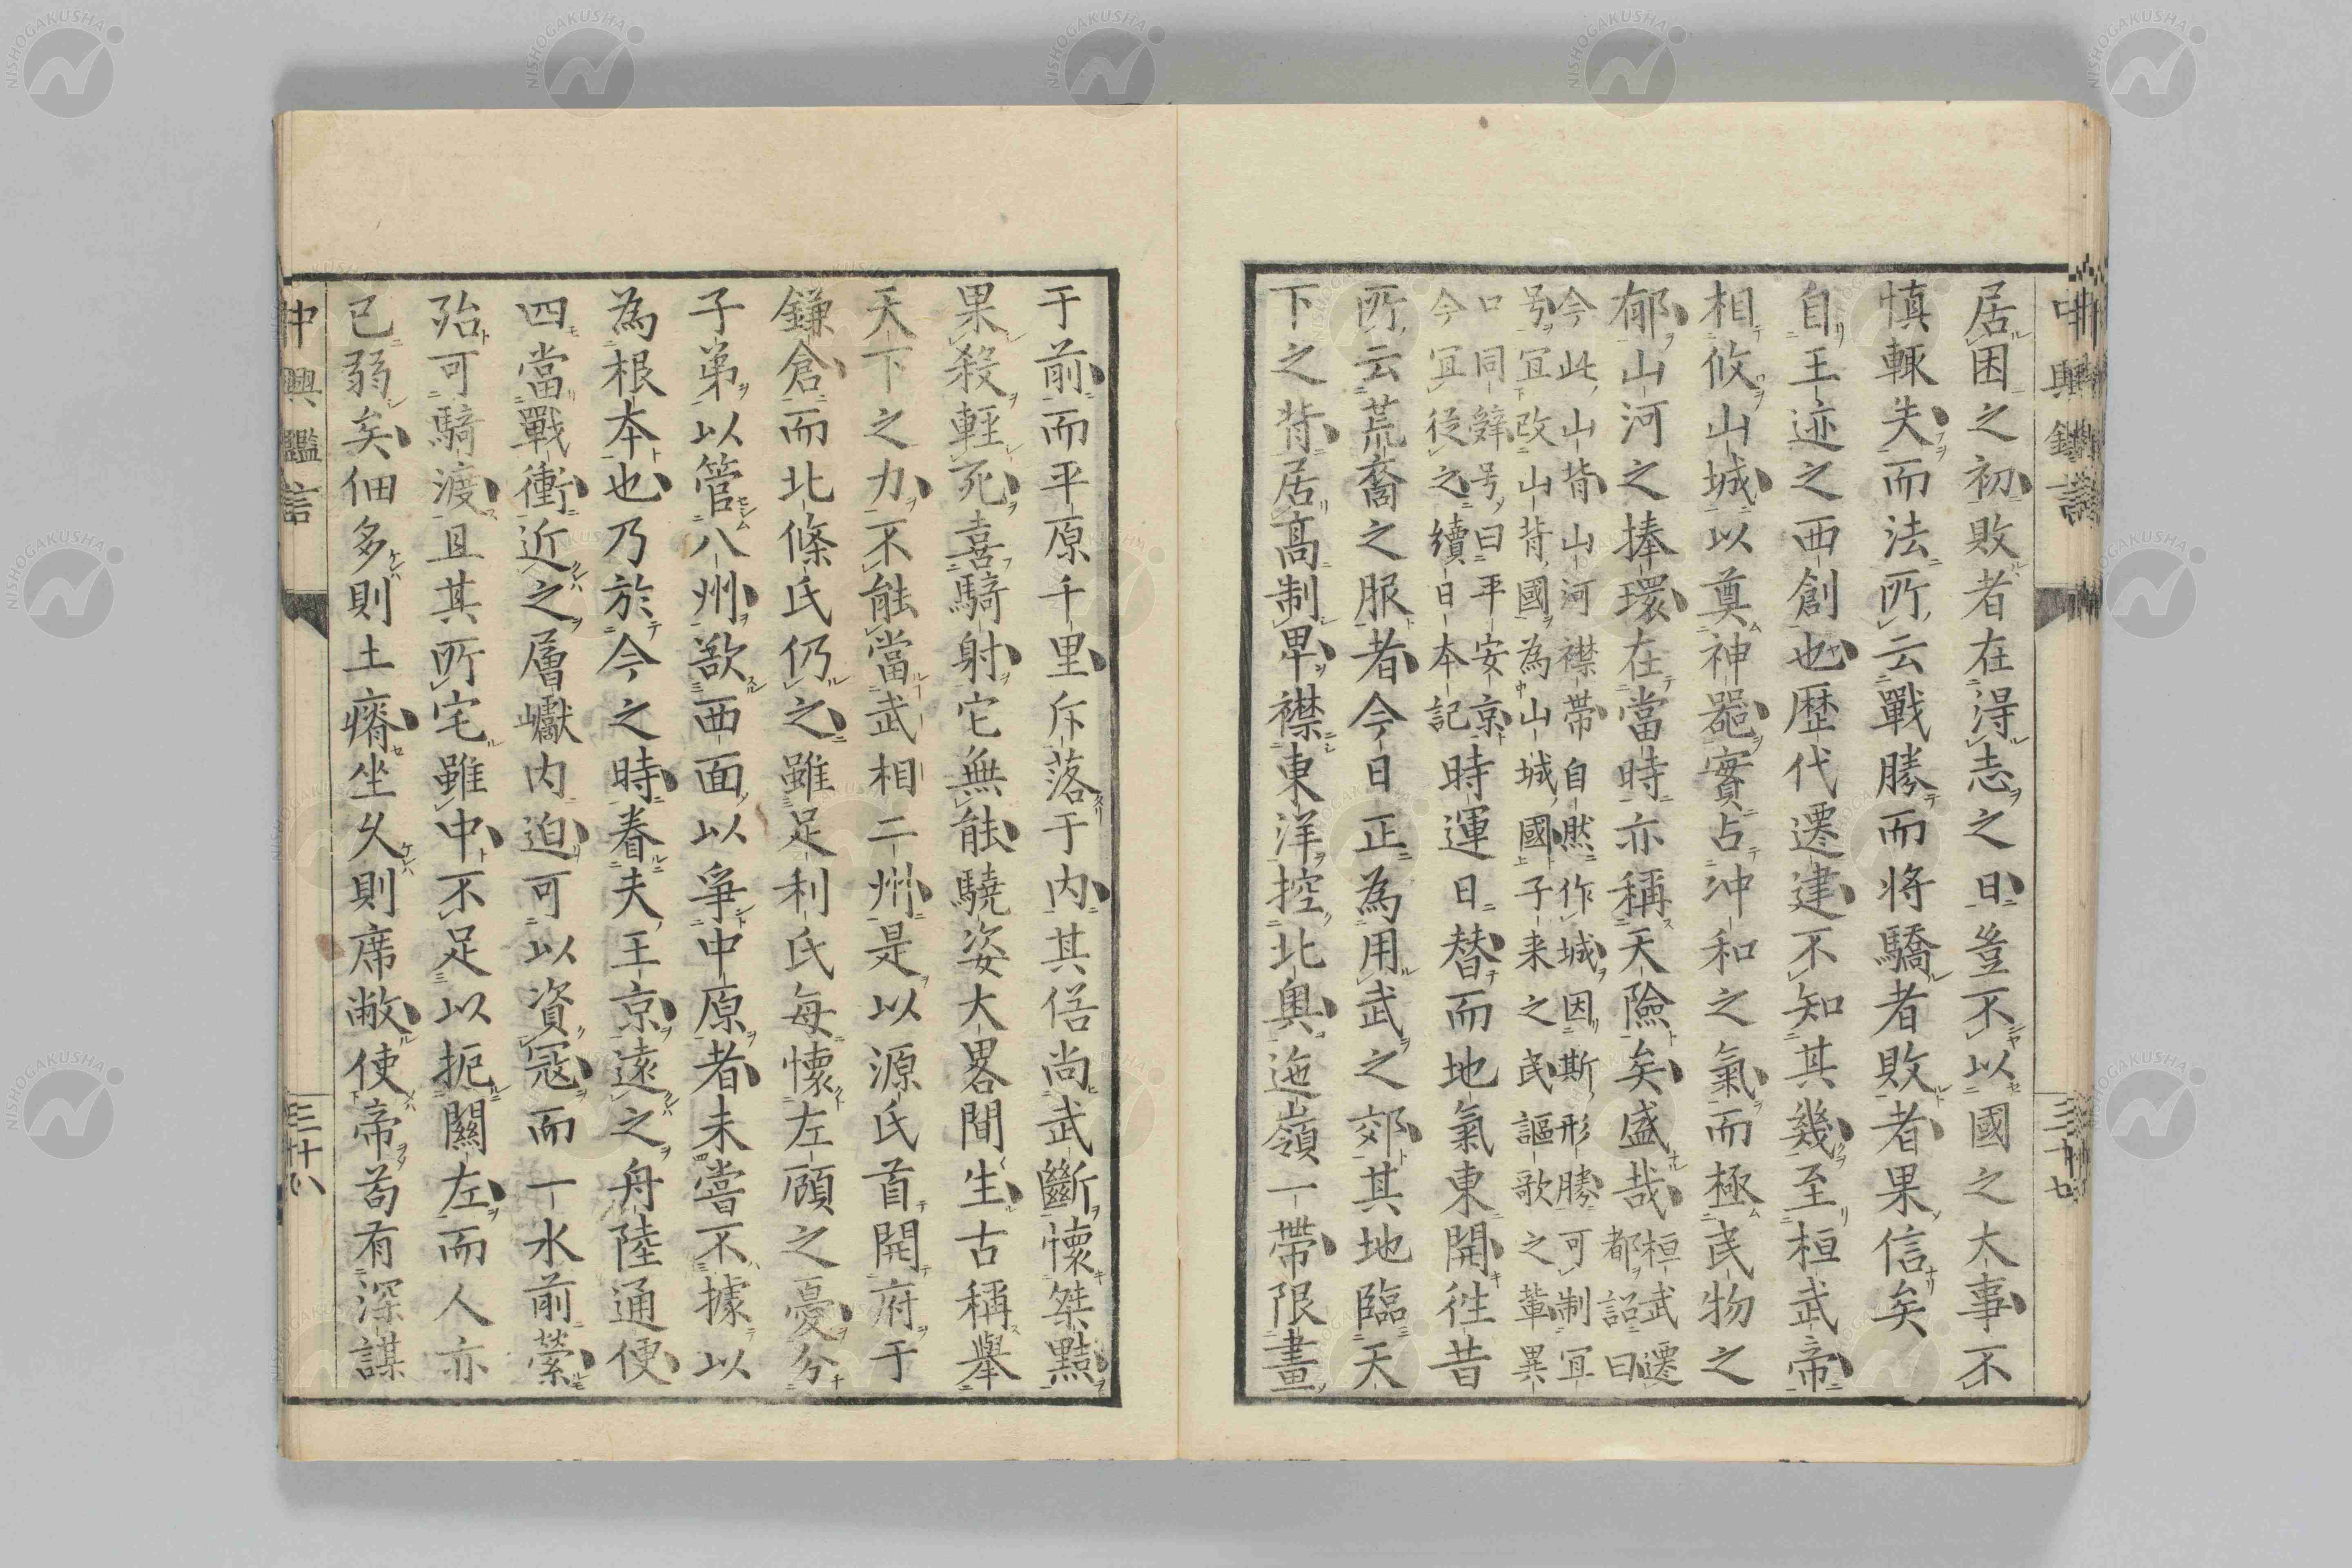 中興鑑言
三十七
居困之初敗者在得志之日豈不以國之大事不
慎輒失而法所云戰勝而將驕者敗者果信矣
自王迹之西創也歷代遷建不知其幾至桓武帝
相攸山城以奠神器實占沖和之氣而極民物之
郁山河之捧環在當時亦稱天險矣盛哉桓武遷
都詔曰
今此山背山河襟帶自然作城因斯形勝可制冝
号冝改山背國為山城國子来之民謳歌之輩異
口同辭号曰平安京
今冝従之續日本記時運日替而地氣東開徃昔
所云荒裔之服者今日正為用武之郊其地臨天
下之背居高制卑襟東洋控北奥迤嶺一帶限畫
于前而平原千里斥落于内其俗尚武斷懷桀黠
果殺輕死喜騎射它無能驍姿大畧間生古稱舉
天下之力不能當武相二州是以源氏首開府于
鎌倉而北條氏仍之雖足利氏每懷左顧之憂分
子弟以管八州欲西面以爭中原者未嘗不據以
為根本也乃於今之時眷夫王京遠之舟陸通便
四當戰衝近之層巘内迫可以資冦而一水前縈
殆可騎渡且其所宅雖中不足以扼關左而人亦
已弱矣佃多則土瘠坐久則席敝使帝苟有深謀
中興鑑言
三十八